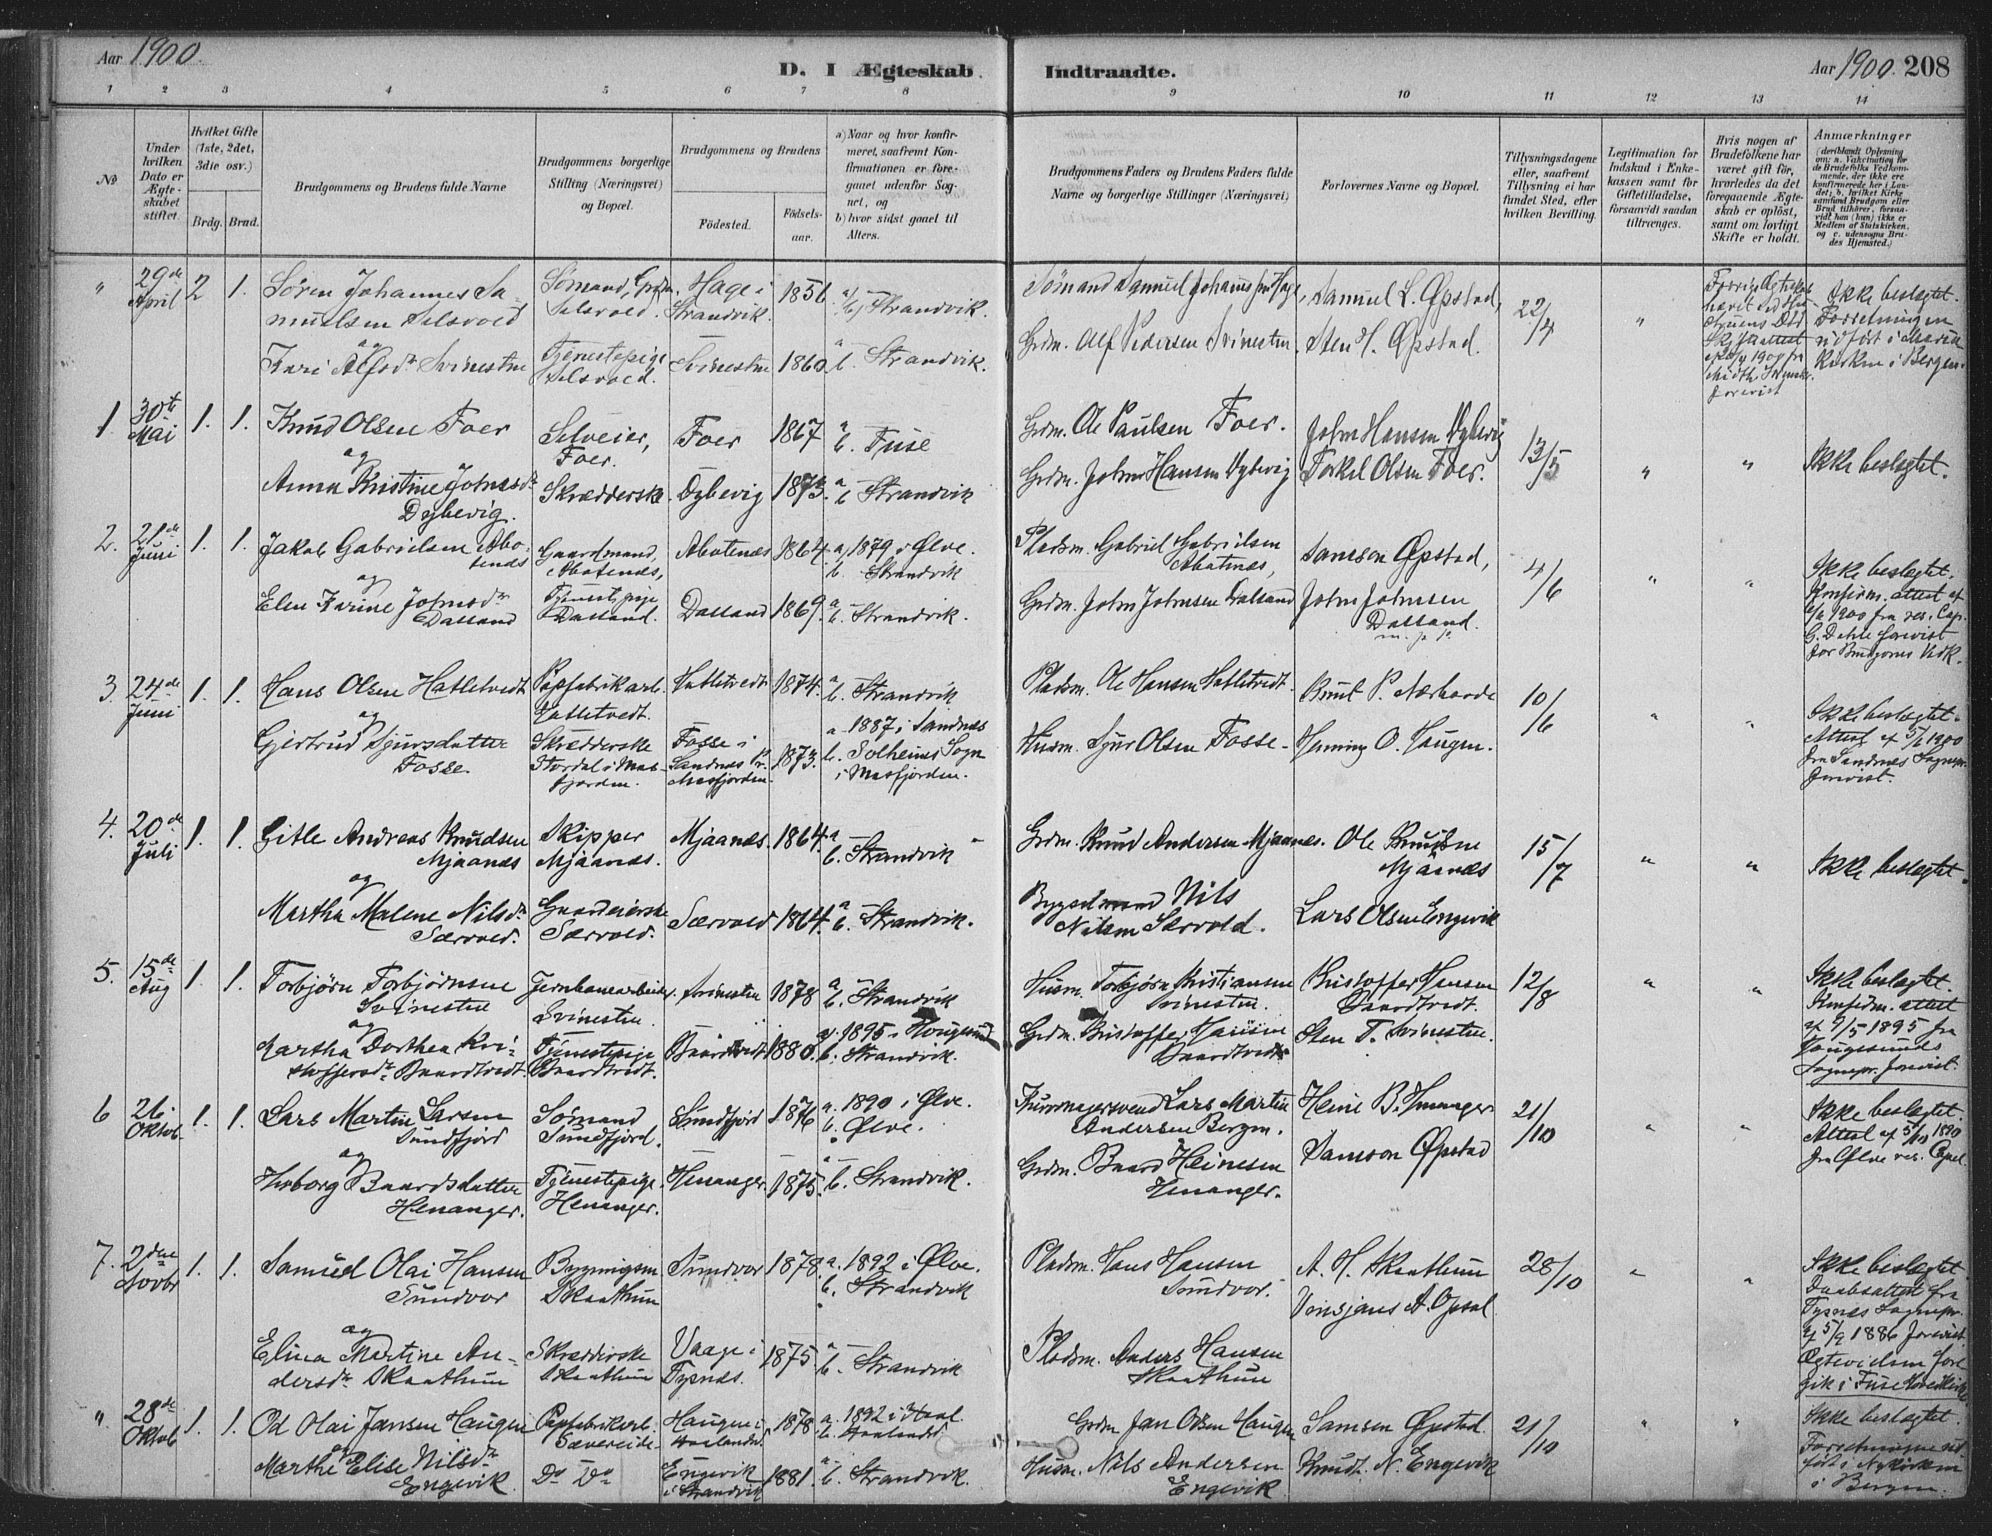 Aar 1900.
D. I Ægteskab Indtraadte.
Aar 1900. 208
1 2 3 4 5 6 7 8 9 10 11 12 13 14
No
Under hvilken Dato er Ægteskabet stiftet.
Hvilket Gifte (1ste, 2det, 3die osv.)
Brdg. Brud.
Brudgommens og Brudens fulde Navne
Brudgommens borgerlige Stilling (Næringsvei) og Bopæl.
Brudgommens og Brudens
Fødested.
Fødselsaar.
a) Naar og hvor konfirmeret, saafremt Konfirmationen er foregaaet udenfor Sognet, og
b) hvor sidst gaaet til Alters.
Brudgommens Faders og Brudens Faders fulde Navne og borgerlige Stillinger (Næringsvei)
Forlovernes Navne og Bopæl.
Tillysningsdagene eller, saafremt Tillysning ei har fundet Sted, efter hvilken Bevilling.
Legitimation for Indskud i Enkekassen samt for Giftetilladelse, forsaavidt saadan tiltrænges.
Hvis nogen af Brudefolkene har været gift før, hvorledes da det foregaaende Ægteskab er opløst, samt om lovligt Skifte er holdt.
Anmærkninger (deriblandt Oplysning om: a. Vakcination for de Brudefolks Vedkommende, der ikke ere konfirmerede her i Landet; b. hvilket Kirkesamfund Brudgom eller Brud tilhører, forsaavidt han (hun) ikke er Medlem af Statskirken, og c. udensogns Brudes Hjemsted.)
" 29de April 2 1. Søren Johannes Samuelsen Selsvold
Sømand, Selsvold. Hage i Strandvik. 1856 a/b/ Strandvik.
Sømand Samuel Johannessen Hage, Samuel L. Øpstad, 22/4 "
Ikke beslægtet. Forretningen udført i Maria Kirken i Bergen.
og
Kari Alfsdr Svinestru Tjenestepige Selsvold. Svinestru 1860 a b. Strandvik.
Grdm. Alf Pedersen Svinestru. Sten H. Øpstad.
1. 30te Mai 1. 1. Knud Olsen Foer Selveier, Foer. Foer 1867 a b. Fuse
Grdm. Ole Paulsen Foer. John Hansen Dybevig 13/5 " " Ikke beslægtet.
og
Anna Kristine Johnsdr Dybevig. Skrædderske Dybevig 1873. a b. Strandvik
Grdm. John Hansen Dybevig Torkel Olsen Foer.
2. 21de Juni 1. 1. Jakob Gabrielsen Abotenæs Gaardmand, Abotenæs, Abotenæs 1864. a, 1879 i Ølve. b. Strandvik
Pladsm. Gabriel Gabrielsen Abotnæs, Samson Øpstad, 4/6 " "
Ikke beslægtet. Konfirm. attest af 6/6 1900 fra res. Cap. G. Dahle forevist for Brudgoms Vedk.
og
Elen Karine Johnsdr Dalland Tjenestepige Dalland. Dalland 1869. a b. Strandvik.
Grdm. John Johnsen Dalland John Johnsen Dalland. m. p. P.
3 24de Juni 1. 1. Hans Olsen Hatletvedt Papfabrikarb. Hatletvedt. Hatletvedt 1874. a b. Strandvik
Pladsm. Ole Hansen Hatletvedt. Knut P. Nærhovde 10/6 " "
Ikke beslægtet. Attest af 5/6 1900 fra Sandnes Sognepr. forevist.
og
Gjertrud Sjursdatter Fosse. Skrædderske Stordal i Masfjorden. Fosse i Sandnes Pr. Masfjorden. 1873. a. 1887 i Sandnæs b. Solheims Sogn i Masfjorden.
Husm. Sjur Olsen Fosse. Henning O. Haugen.
4. 20de Juli 1. 1. Gitle Andreas Knudsen Mjaanæs Skipper Mjaanæs. Mjaanæs. 1864. a b. Strandvik "
Grdm. Knud Andersen Mjaanæs. Ole Knudsen Mjaanæs 15/7 " " Ikke beslægtet.
og
Martha Malene Nilsdr Særvold. Gaardeierske Særvold. Særvold 1864. a b. Strandvik.
Bygselmand Nils Nilsen Særvold. Lars Olsen Engevik
5. 15de Aug 1. 1. Torbjørn Torbjørnsen Svinestru Jernbanearbeider, Svinestru. Svinestru 1878 a b. Strandvik
Husm. Torbjørn Kristiansen Svinestru. Kristoffer Hansen Baardtvedt. 12/8 " "
Ikke beslægtet. Konfirm. attest af 9/5 1895 fra Haugesunds Sognepr. forevist.
og
Martha Dorthea Kristoffersdr Baardtvedt. Tjenestepige Baardtvedt. Baardtvedt 1880. a. 1895 i Haugesund b. Strandvik.
Grdm. Kristoffer Hansen Baardtvedt Sten T. Svinestru.
6 26. Oktob. 1. 1. Lars Martin Larsen Sundfjord Sømand Sundfjord. Sundfjord 1876 a. 1890 i Ølve. b. Ølve.
Lars Martin Andersen Bergen. Heine B. Henanger. 21/10 " "
Ikke beslægtet. Attest af 5/10 1890 fra Ølve res. Capel.
og
Baardsdatter Henanger. Tjenestepige. Henanger. Henanger. 1875. a b. Strandvik.
Grdm. Baard Heinesen Henanger. Samson Øpstad
7. 2den Novbr 1. 1. Samuel Olai Hansen Sundvor Bygningsm Skaathun Sundvor 1878. a. 1892 i Ølve. b. Strandvik
Pladsm. Hans Hansen Sundvor. A. H. Skaathun 28/10 " "
Vinsjans A. Opsal
Ikke beslægtet. Daabsattest fra Tysnæs Sognepr. af 5/9 1886 forevist. Ægtevielsen foregik i Fuse Hovedkirke
og
Elina Martine Andersdr Skaathun Skrædderske Skaathun Vaage i Tysnæs. 1875. a b. Strandvik
Pladsm. Anders Hansen Skaathun
" 28de Oktob 1. 1. Od Olai Jansen Haugen Papfabrikarb. Sævereide. Haugen i 1878. a. 1892 i
Grdm Jan Olsen Haugen Samson Øpstad. 21/10 " "
Ikke beslægtet. Forretningen udført i Nykirken i Bergen.
og
Marthe Elise Nilsdr Engevik Do Do Engevik i Strandvik 1881. a b. Strandvik.
Husm. Nils Andersen Engevik Knudt N. Engevik